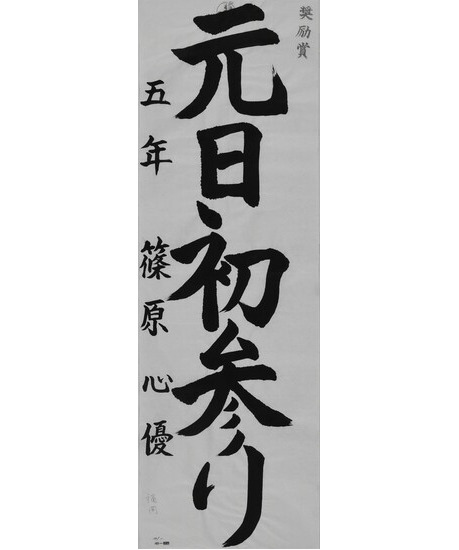 奨励賞
元日初参り
五年 篠原心優